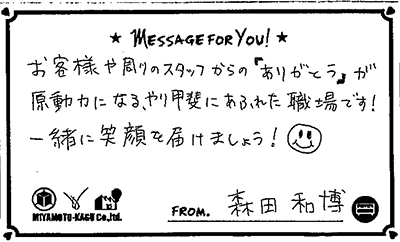 ★ MESSAGE FOR YOU! ★
お客様や周りのスタッフからの『ありがとう』が
原動力になる、やり甲斐にあふれた職場です!
一緒に笑顔を届けましょう!
MIYAMOTO-KAGU Co.,ltd.
FROM. 森田 和博